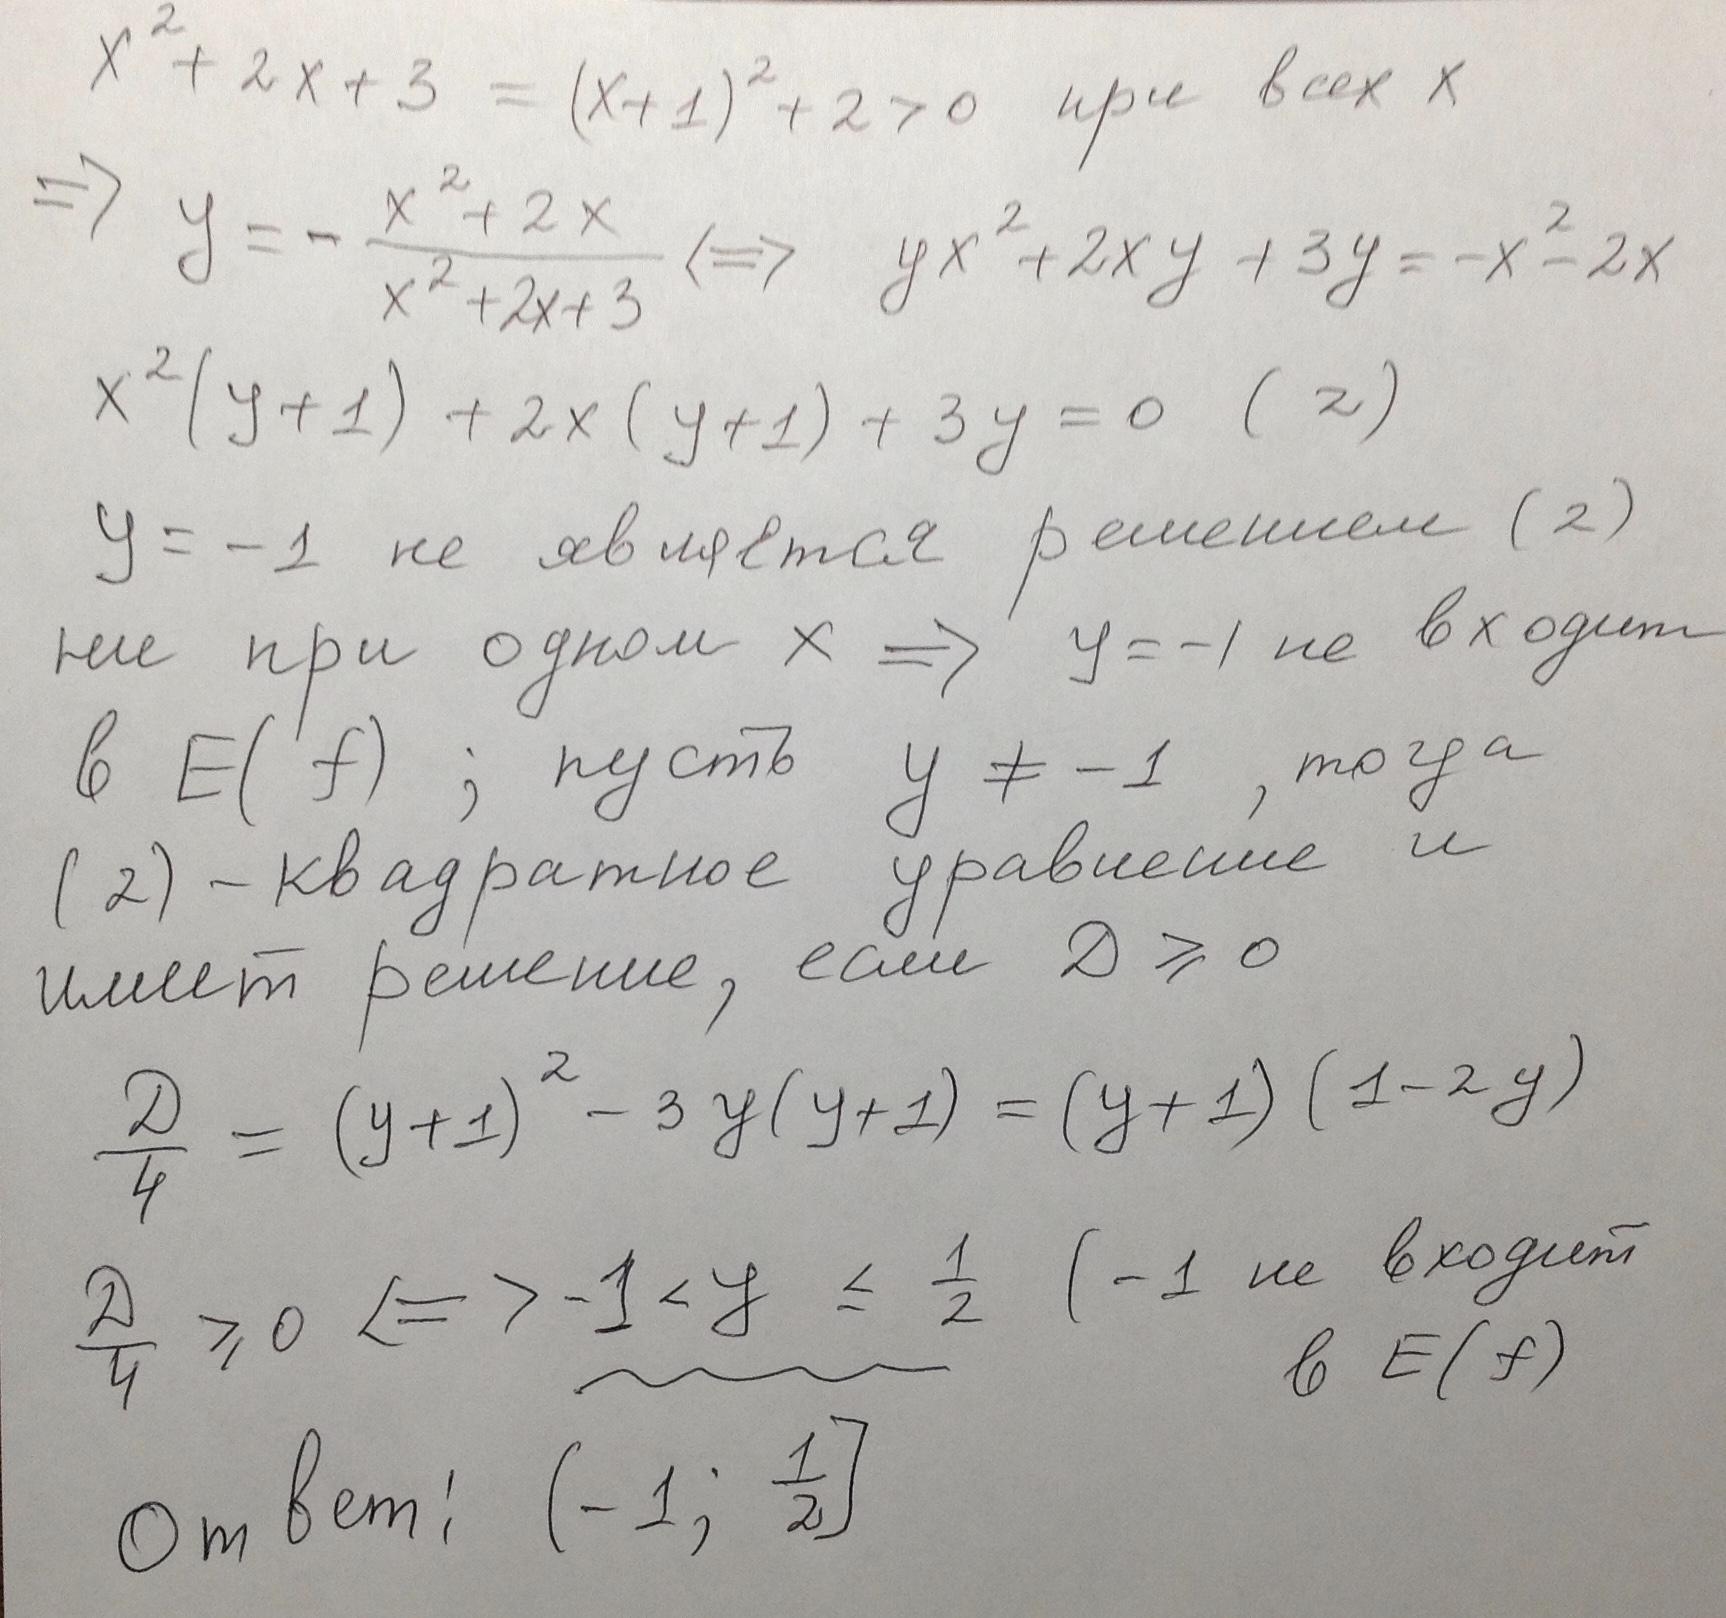 x² + 2x + 3 = (x+1)² + 2 > 0 при всех x
=> y = - (x² + 2x)/(x² + 2x + 3) <=> yx² + 2xy + 3y = -x² - 2x
x²(y+1) + 2x(y+1) + 3y = 0 (2)
y = -1 не является решением (2)
ни при одном x => y = -1 не входит
в E(f); пусть y ≠ -1, тогда
(2) - квадратное уравнение и
имеет решение, если D ⩾ 0
D/4 = (y+1)² - 3y(y+1) = (y+1)(1-2y)
D/4 ⩾ 0 <=> -1 < y ≤ 1/2 (-1 не входит
в E(f)
Ответ: (-1; 1/2]